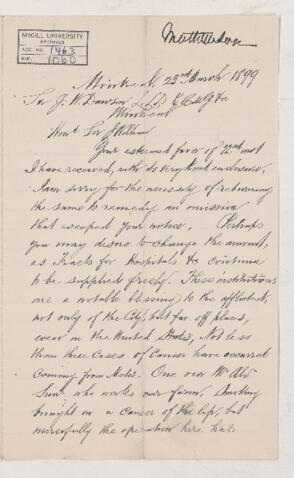 McGILL UNIVERSITY
ARCHIVES
ACC. NO. 1463
REF. 1060
Matthewson
Montreal, 23rd March 1899
Sir J. W. Dawson L.L.D. &c
Montreal
Sir William
Your esteemed favor of 22nd inst
I have received, with its very kind enclosure,
I am sorry for the necessity of returning
the same to remedy an omission
that escaped your notice. Perhaps
you may desire to change the amount,
as Tracts for Hospitals &c continue
to be supplied freely. These institutions
are a notable blessing to the afflicted,
not only of the City, but far off places,
even in the United States. Not less
than three cases of Cancer have occurred
coming from Metis. One our Mr
who works our farm, Smoking
brought on a cancer of the lip, but
mercifully the operation here has